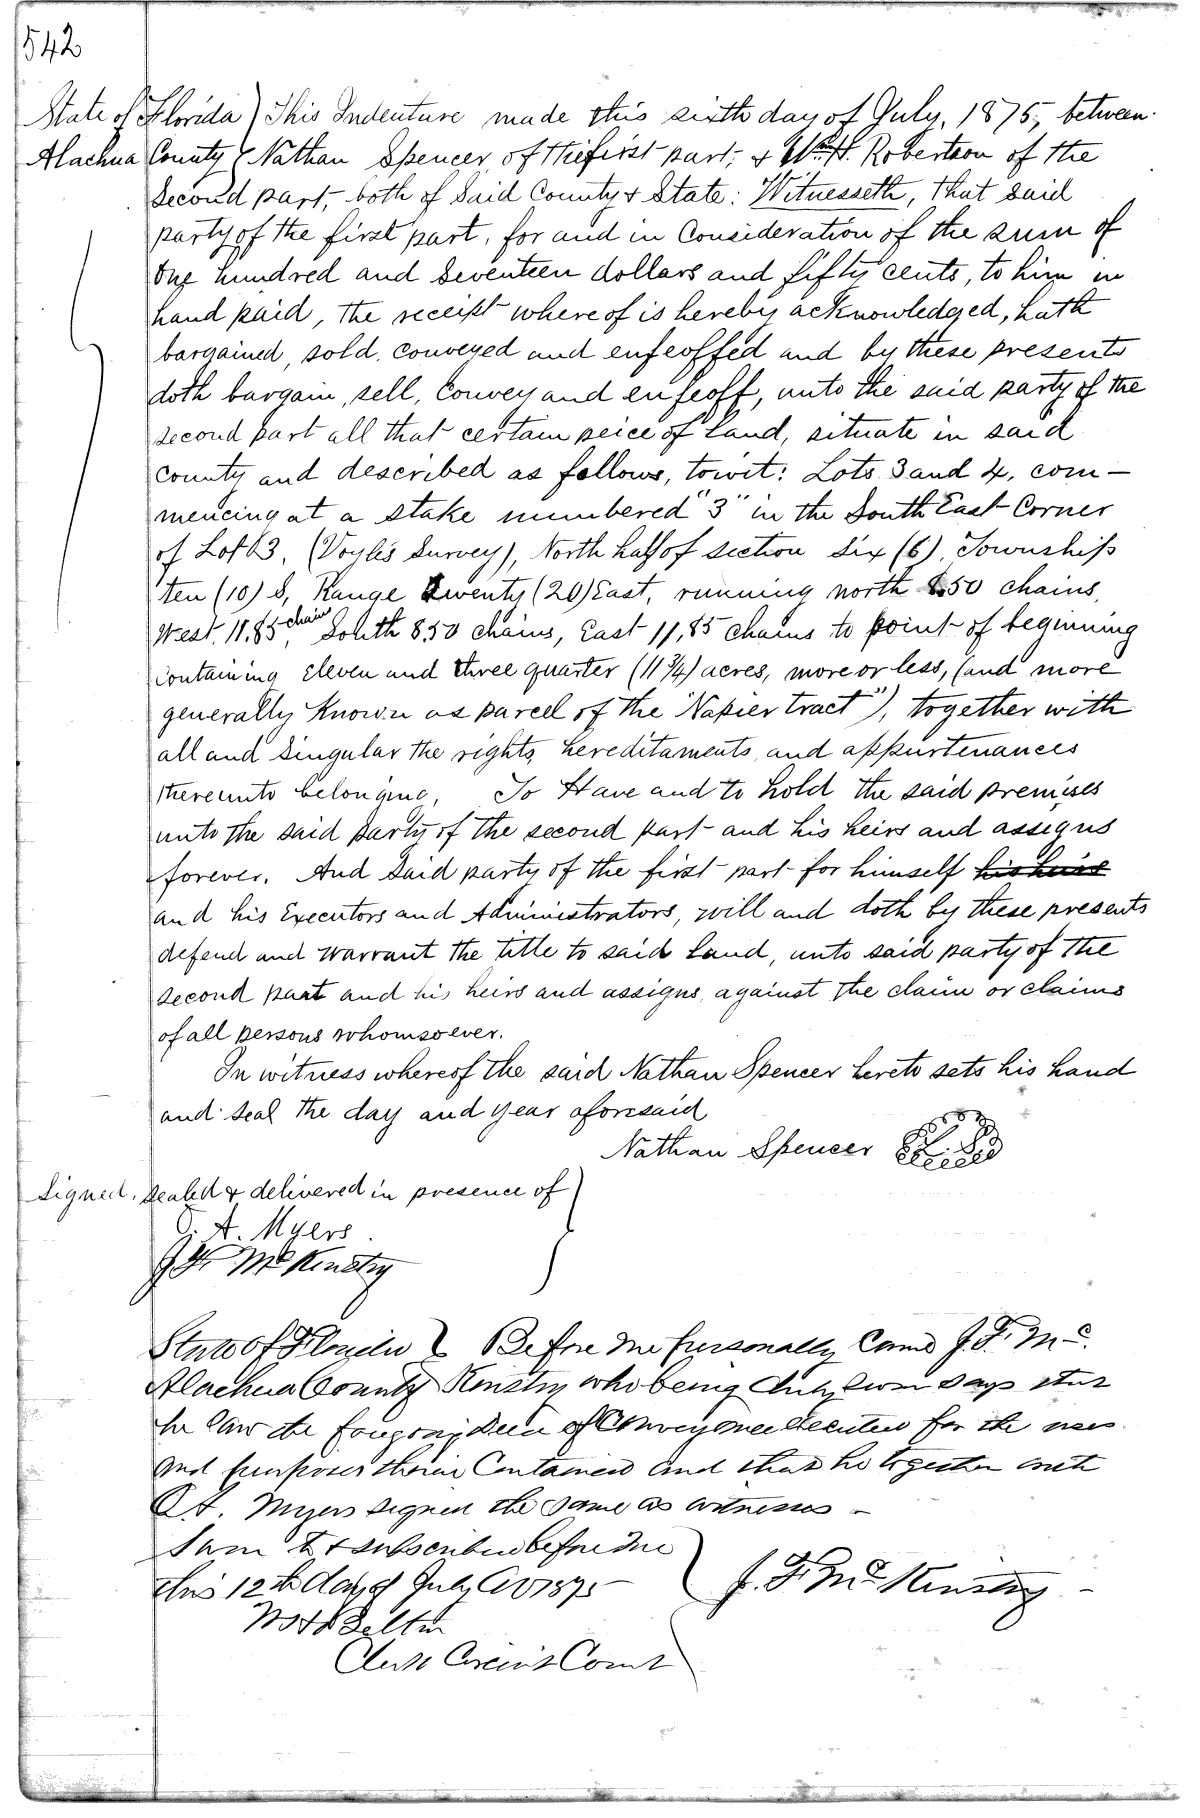 542
State of Florida } This Indenture made this sixth day of July, 1875, between
Alachua County } Nathan Spencer, of the first part; & Wm. H. Robertson of the
Second part, both of Said County & State: Witnesseth, That said
party of the first part, for and in Consideration of the sum of
One hundred and Seventeen dollars and fifty cents, to him in
hand paid, the receipt where of is hereby acknowledged, hath
bargained, sold, conveyed and enfeoffed and by these presents
doth bargain, sell, Convey and enfeoff, unto the said party of the
second part all that certain peice of Land, situate in said
county and described as follows, towit: Lots 3 and 4, com-
mencing at a stake numbered "3" in the South East Corner
of Lot 3, (Voyle's Survey), North half of section Six (6), Township
ten (10) S, Range Twenty (20) East, running north 8.50 chains,
West 11.85 chain, South 8.50 chains, East 11,85 chains to point of beginning
containing Eleven and three quarter (11 3/4) acres, more or less, (and more
generally Known as parcel of the "Napier tract"), together with
all and Singular the rights, hereditaments, and appurtenances
thereunto belonging. To Have and to hold the said premises
unto the said party of the second part and his heirs and assigns
forever. And Said party of the first part for himself his heirs
and his Executors and Administrators, will and doth by these presents
defend and warrant the title to said Land, unto said party of the
second part and his heirs and assigns, against the claim or claims
of all persons whomsoever.
In witness whereof the said Nathan Spencer hereto sets his hand
and seal the day and year aforesaid
Nathan Spencer L. S.
Signed, sealed & delivered in presence of }
O. A. Myers
J. F. McKinstry
State of Florida } Before me personally Came J. F. Mc
Alachua County } Kinstry who being duly sworn says that
he saw the foregoing deed of Conveyance executed for the uses
and purposes therein Contained and that he together with
O. A. Myers signed the same as witnesses -
Sworn to & subscribed before me
this 12th day of July AD 1875 J. F. McKinstry -
Clerk Circuit Court